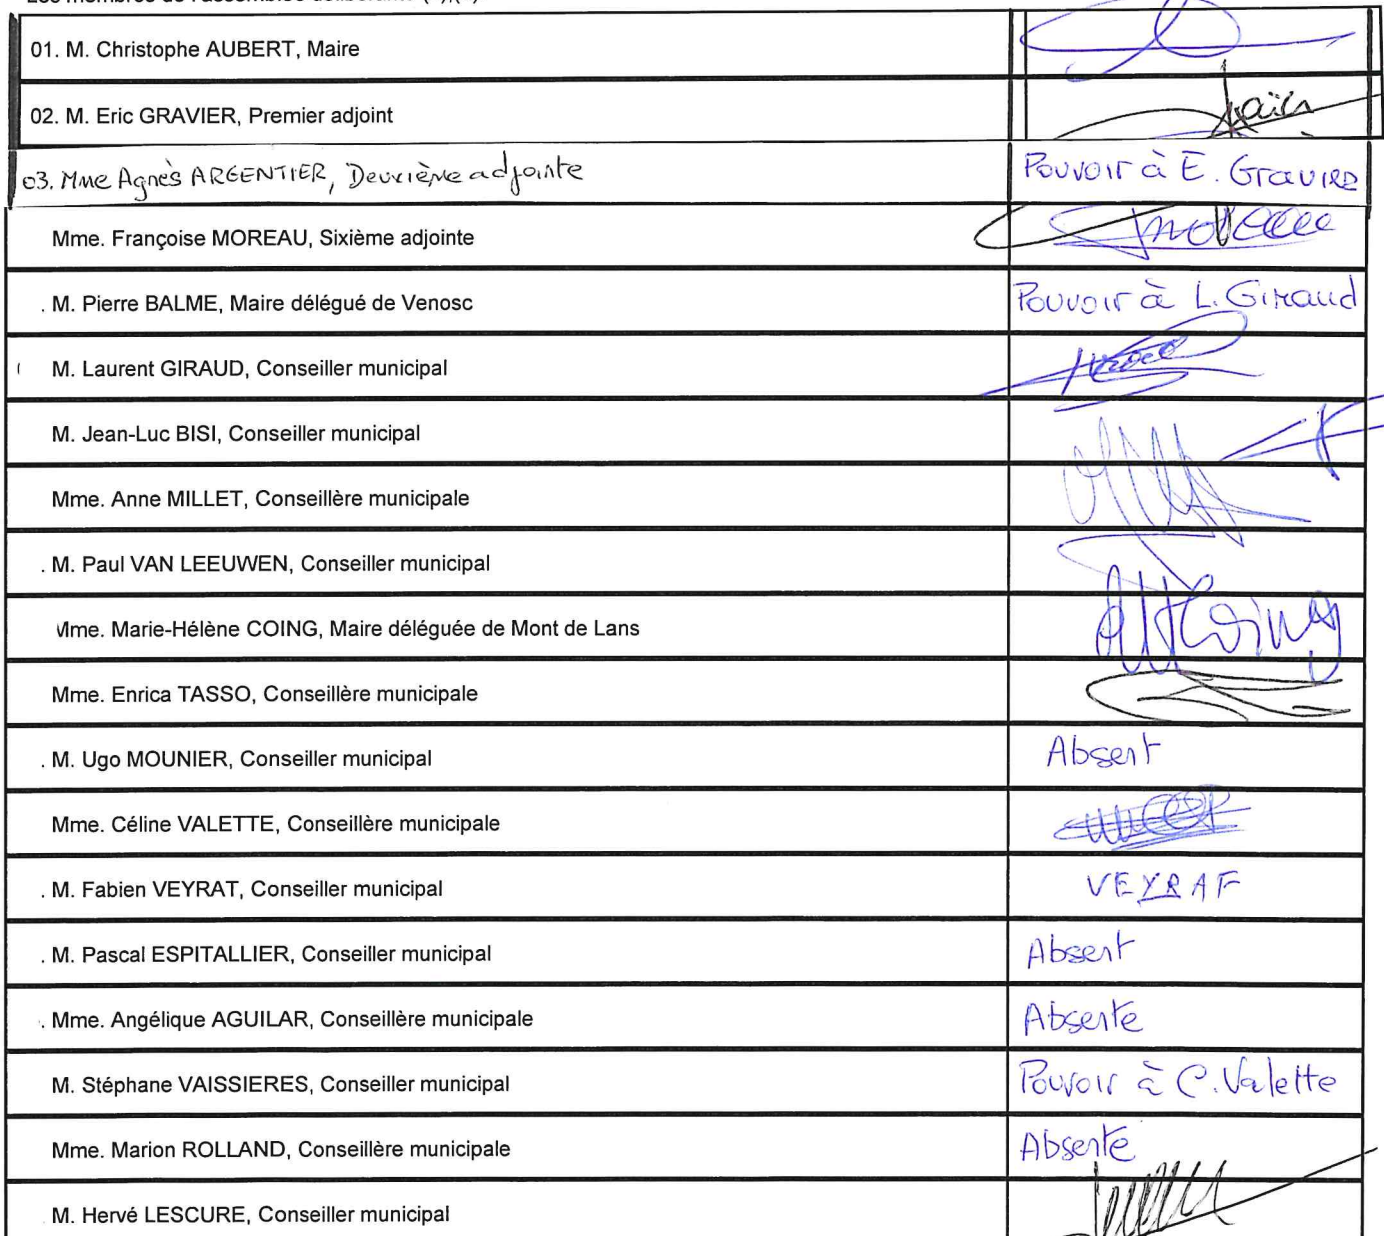 01. M. Christophe AUBERT, Maire
02. M. Eric GRAVIER, Premier adjoint
03. Mme Agnès ARGENTIER, Deuxième adjointe Pouvoir à E. Gravier
Mme. Françoise MOREAU, Sixième adjointe
. M. Pierre BALME, Maire délégué de Venosc Pouvoir à L. Giraud
M. Laurent GIRAUD, Conseiller municipal
M. Jean-Luc BISI, Conseiller municipal
Mme. Anne MILLET, Conseillère municipale
. M. Paul VAN LEEUWEN, Conseiller municipal
Mme. Marie-Hélène COING, Maire déléguée de Mont de Lans
Mme. Enrica TASSO, Conseillère municipale
. M. Ugo MOUNIER, Conseiller municipal Absent
Mme. Céline VALETTE, Conseillère municipale
. M. Fabien VEYRAT, Conseiller municipal VEYRAT
. M. Pascal ESPITALLIER, Conseiller municipal Absent
. Mme. Angélique AGUILAR, Conseillère municipale Absente
M. Stéphane VAISSIERES, Conseiller municipal Pouvoir à C. Valette
Mme. Marion ROLLAND, Conseillère municipale Absente
M. Hervé LESCURE, Conseiller municipal